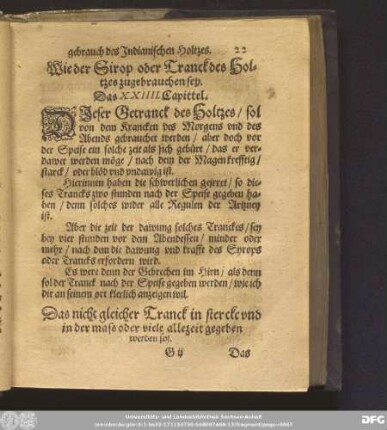 gebrauch des Indianischen Holtzes. 22
Wie der Sirop oder Tranck des Hol-
tzes zugebrauchen sey.
Das XXIIII. Capittel.
DJeser Getranck des Holtzes / sol
von dem Krancken des Morgens vnd des
Abends gebrauchet werden / aber doch vor
der Speise ein solche zeit als sich gebürt / das er ver-
dawet werden möge / nach dem der Magen krefftig /
starck / oder blöd vnd vndawig ist.
Hierinnen haben die schwerlichen geirret / so die-
ses Trancks zwo stunden nach der Speise gegeben ha-
ben / denn solches wider alle Regulen der Artzney
ist.
Aber die zeit der dawung solches Tranckes / sey
bey vier stunden vor dem Abendessen / minder oder
mehr / nach dem die dawung vnd krafft des Syrops
oder Trancks erfordern wird.
Es were denn der Gebrechen im Hirn / als denn
sol der Tranck nach der Speise gegeben werden / wie ich
dir an seinem ort klerlich anzeigen wil.
Das nicht gleicher Tranck in stercke vnd
in der mass oder viele allezeit gegeben
werden sol.
G ij Das
Universitäts- und Landesbibliothek Sachsen-Anhalt